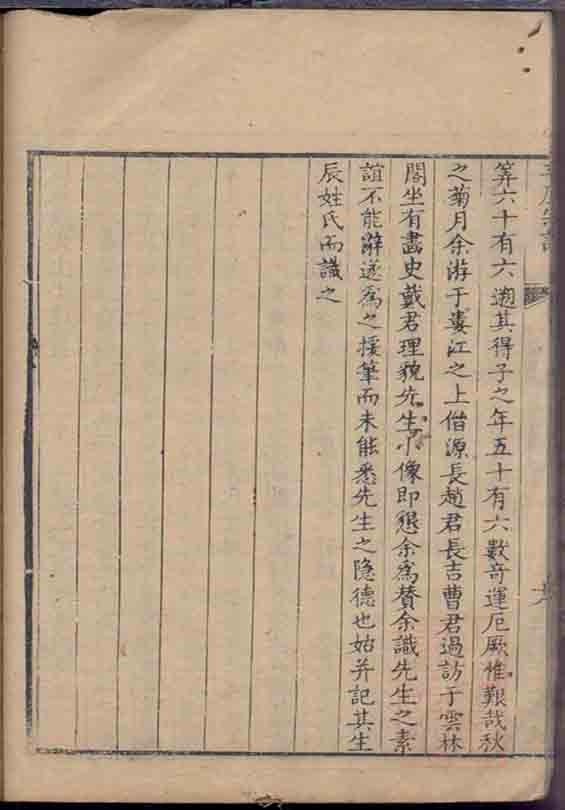 筭六十有六遡其得子之年五十有六數奇運厄厥惟艱哉秋
之菊月余游于婁江之上偕源長趙君長吉曹君過訪于雲林
閣坐有畵史戴君理貌先生小像即懇余爲賛余識先生之素
誼不能辭遂爲之援筆而未能悉先生之隐德也姑并記其生
辰姓氏而識之